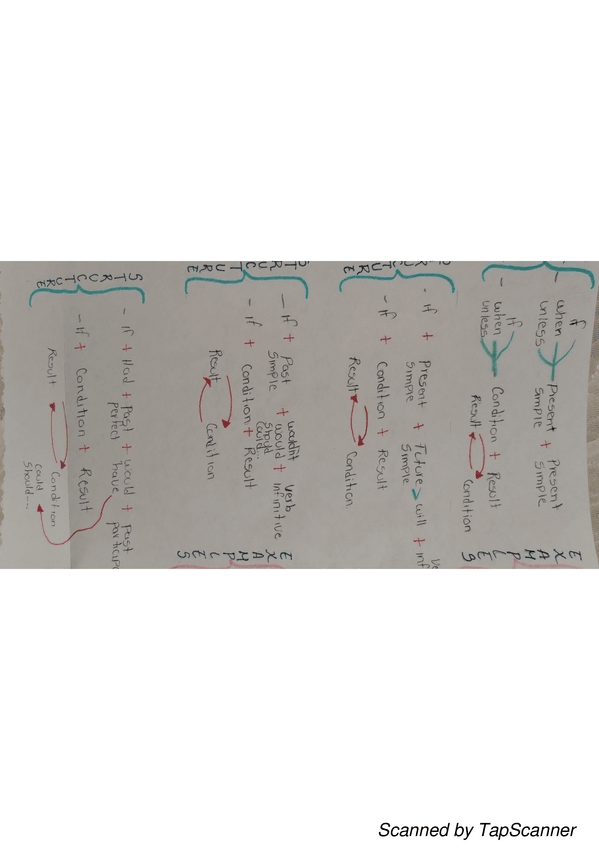 If
- when
unless
Present + Present
Simple Simple
If
- when
unless
Condition + Result
Result Condition
EXAMPLES
- If + Present + Future > will + inf
Simple Simple
- If + Condition + Result
Result Condition
- If + Past + would + Verb
Simple wouldn't should could... infinitive
- If + Condition + Result
Result Condition
EXAMPLES
STRUCTURE
- If + Had + Past + would + Past
perfect have particip
- If + Condition + Result
Result Condition
could
should...
Scanned by TapScanner